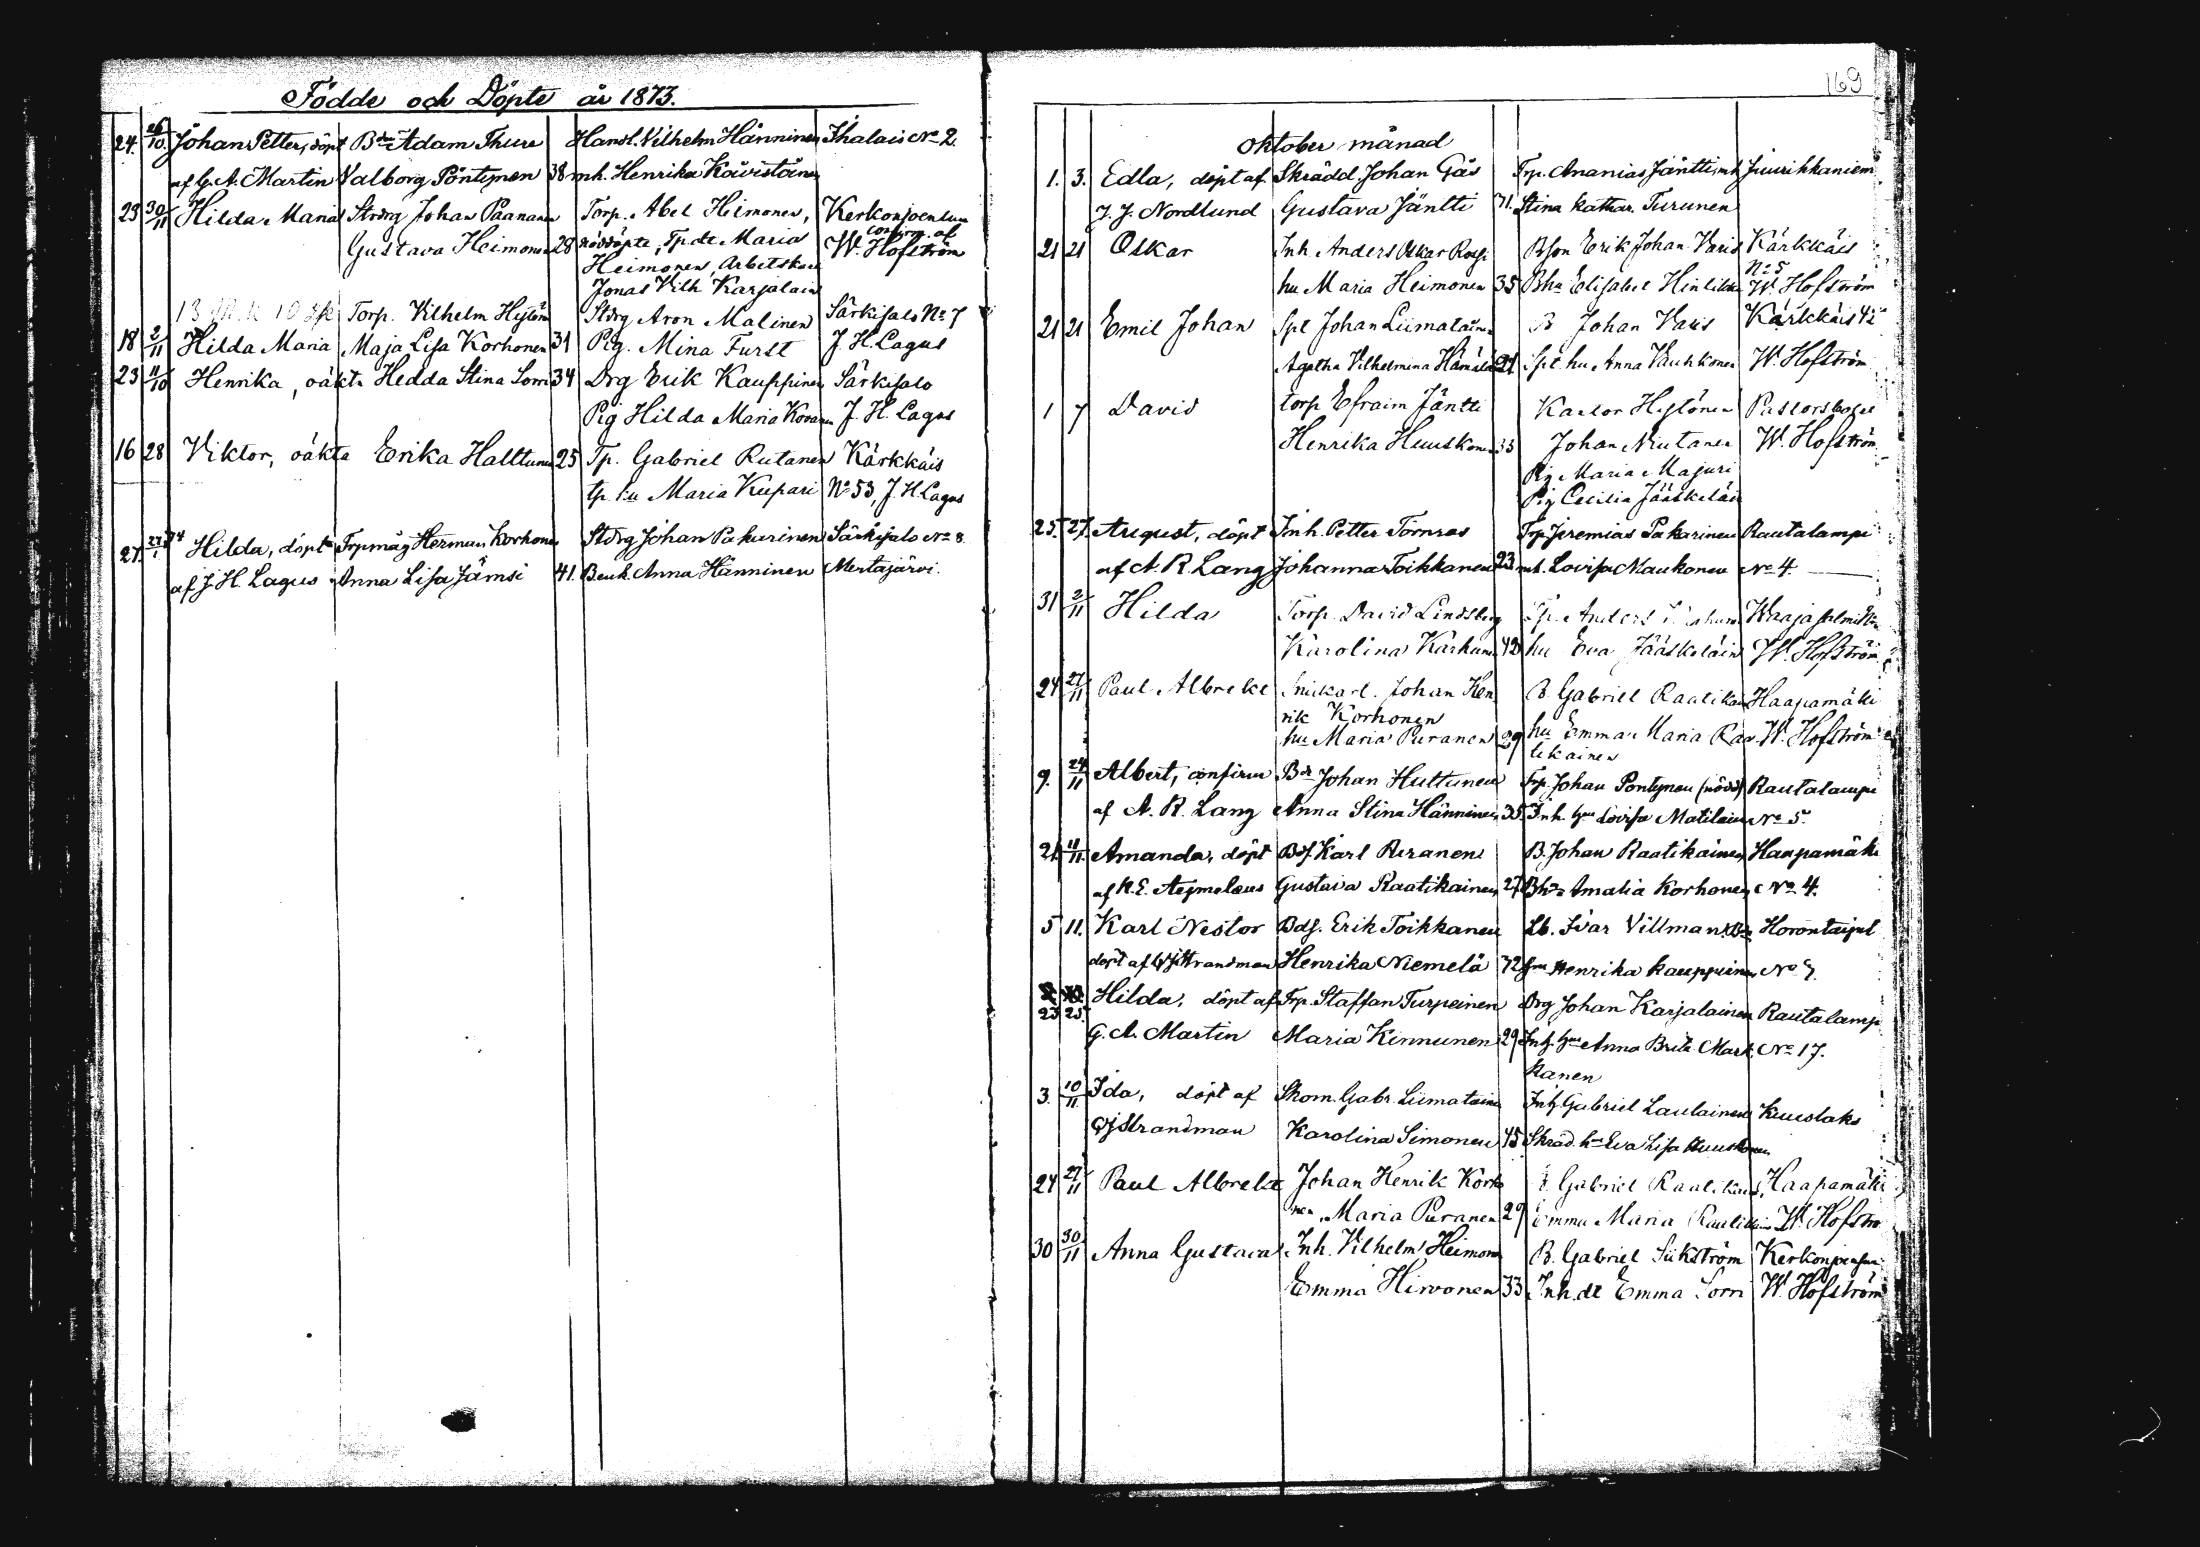 Födde och Döpte år 1873.
24. 26/10. Johan Petter, döpt Bdn Adam Thure Handl. Vilhelm Hänninen Ihalais No 2.
af G. A. Martin Valborg Pöntynen 38 mh. Henrika Kävistäinen
23 30/11 Hilda Maria Stdrg Johan Paananen Torp. Abel Heimonen, Kerkonjoensuu
Gustava Heimonen 28 nöddöpte, Tp. dt. Maria confirm. af
Heimonen, Arbetskarl W. Hofström
Jonas Vilh Karjalain
13 10 Torp. Vilhelm Hytön Stdrg Aron Malinen Särkisalo No 7
18 2/11 Hilda Maria Maja Lisa Korhonen 31 Pig. Mina Furst J. H. Lagus
23 11/10 Henrika, oäkta Hedda Stina Sorri 34 Drg Erik Kauppinen Särkisalo
Pig Hilda Maria Kovanen J. H. Lagus
16 28 Viktor, oäkta Erika Halttunen 25 Tp. Gabriel Rutanen Kärkkäis
tp. hu Maria Kupari No 53, J. H. Lagus
27. 27/1 74 Hilda, döpt Trpmåg Herman Korhonen Stdrg Johan Pakarinen Särkisalo No 8.
af J. H. Lagus Anna Lisa Jämsi 41. Benk. Anna Hänninen Mertajärvi.
169
Oktober månad
1. 3. Edla, döpt af Skrädd. Johan Gås Trp. Ananias Jäntti, mh. Juurikkaniemi
J. J. Nordlund Gustava Jäntti 71. Stina Kathar. Turunen
21 21 Oskar Inh. Anders Oskar Rossi Bson Erik Johan Varis Kärkkäis
hu Maria Heimonen 35 Bhu Elisabet Hintikka No 5
W. Hofström
21 21 Emil Johan Spl Johan Liimatainen B Johan Varis Kärkkäis 42
Agatha Vilhelmina Hämäläi 21 Spl hu Anna Vauhkonen W. Hofström
1 7 David torp Efraim Jäntti Kastor Hytönen Pastorsbolet
Henrika Huuskonen 33 Johan Niutanen W. Hofström
Pig Maria Majuri
Pig Cecilia Jääskeläin
25. 27. August, döpt Inh. Petter Törnros Trp Jeremias Pakarinen Rautalampi
af A. R. Lang Johanna Toikkanen 23 mh. Lovisa Maukonen No 4.
31 2/11 Hilda Torp. David Lindsberg Tp. Anders Waajasalmi
Karolina Kärhunen 42 hu Eva Jääskeläin W. Hofström
24 27/11 Paul Albrekt Snickarl. Johan Hen B. Gabriel Raatikain Haapamäki
rik Korhonen
hu Maria Puranen 29 hu Emma Maria Raa W. Hofström
tikainen
9. 24/11 Albert, confirm Bdr Johan Huttunen Trp. Johan Pöntynen (nödd) Rautalampi
af A. R. Lang Anna Stina Hänninen 35. Inh. hu Lovisa Matilain No 5.
21. 11/11. Amanda, döpt Bdf Karl Puranen B. Johan Raatikainen Haapamäki
af K. E. Aejmelæus Gustava Raatikainen 27 Bhu Amalia Korhonen No 4.
5 11. Karl Nestor Bdf. Erik Toikkanen Lb. Ivar Villman Horontaipal
döpt af Strandman Henrika Niemelä 42 Henrika Kauppinen No 7.
23 25. Hilda, döpt af Trp. Staffan Turpeinen Drg Johan Karjalainen Rautalamp
G. A. Martin Maria Kinnunen 29 Inh. hu Anna Brita Mark No 17.
kanen
3. 10/11 Ida, döpt af Skom. Gabr. Liimatainen Inh Gabriel Laulainen Kuuslaks
Strandman Karolina Simonen 45 Skräd. hu Eva Lisa Huuskonen
24 27/11 Paul Albrekt Johan Henrik Korho Gabriel Raatikain, Haapamäki
nen, Maria Puranen 29 Emma Maria Raatikain W. Hofströ
30 30/11 Anna Gustava Inh. Vilhelm Heimonen B. Gabriel Siikström Kerkonjoensuu
Emma Hirvonen 33 Inh. dt Emma Sorri W. Hofström